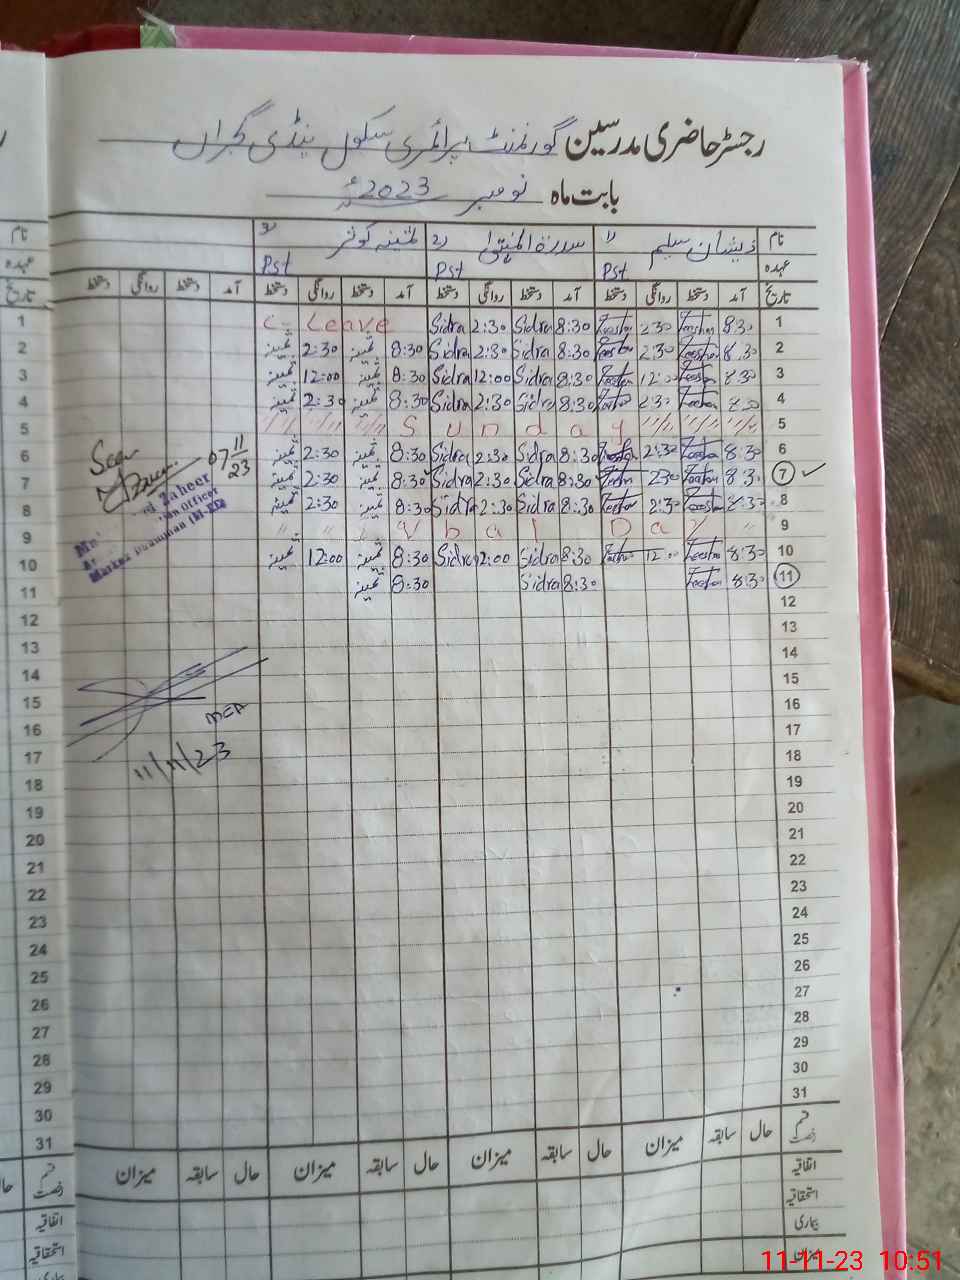 رجسٹر حاضری مدرسین گورنمنٹ پرائمری سکول پنڈی گجراں
بابت ماہ نومبر 2023ء
نام ذیشان سلیم سدرۃ المنتہیٰ ثمینہ کوثر نام
عہدہ Pst Pst Pst عہدہ
تاریخ آمد دستخط روانگی دستخط آمد دستخط روانگی دستخط آمد دستخط روانگی دستخط آمد دستخط روانگی دستخط تاریخ
1 C- Leave Sidra 2:30 Sidra 8:30 Zeeshan 2:30 Zeeshan 8:30 1
2 2:30 8:30 Sidra 2:30 Sidra 8:30 Zeeshan 2:30 Zeeshan 8:30 2
3 12:00 8:30 Sidra 12:00 Sidra 8:30 Zeeshan 12:00 Zeeshan 8:30 3
4 2:30 8:30 Sidra 2:30 Sidra 8:30 Zeeshan 2:30 Zeeshan 8:30 4
5 Sunday 5
6 2:30 8:30 Sidra 2:30 Sidra 8:30 Zeeshan 2:30 Zeeshan 8:30 6
7 2:30 8:30 Sidra 2:30 Sidra 8:30 Zeeshan 2:30 Zeeshan 8:30 7
8 2:30 8:30 Sidra 2:30 Sidra 8:30 Zeeshan 2:30 Zeeshan 8:30 8
9 Iqbal Day 9
10 12:00 8:30 Sidra 12:00 Sidra 8:30 Zeeshan 12:00 Zeeshan 8:30 10
11 8:30 Sidra 8:30 Zeeshan 8:30 11
12 12
13 13
14 14
15 15
16 16
17 17
18 18
19 19
20 20
21 21
22 22
23 23
24 24
25 25
26 26
27 27
28 28
29 29
30 30
31 31
Seen
07/11/23
Zaheer
officer
Markaz
MEA
11/11/23
قسم رخصت حال سابقہ میزان حال سابقہ میزان حال سابقہ میزان حال سابقہ میزان قسم رخصت
اتفاقیہ اتفاقیہ
استحقاقیہ استحقاقیہ
بیماری
میزان
11-11-23 10:51